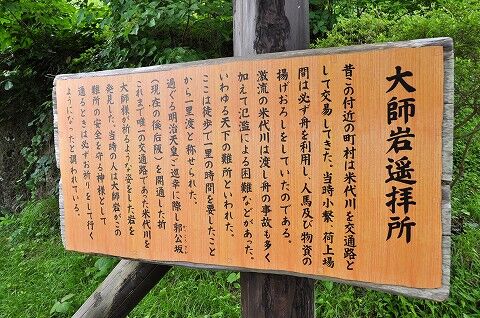 大師岩遥拝所
昔この付近の町村は米代川を交通路と
して交易してきた。当時小繋、荷上場
間は必ず舟を利用し、人馬及び物資の
揚げおろしをしていたのである。
激流の米代川は渡し舟の事故も多く
加えて氾濫による困難などがあった。
いわゆる天下の難所といわれた。
ここは徒歩で一里の時間を要したこと
から一里渡と称せられた。
過ぐる明治天皇ご巡幸に際し郭公坂
(現在の後坂)を開通した折
これまで唯一の交通路であった米代川を
大師様が祈るような姿をした岩を
発見した。当時の人は大師岩がこの
難所の安全を守る神様として
通るときは必ずお祈りをして行く
ようになったと謂われている。